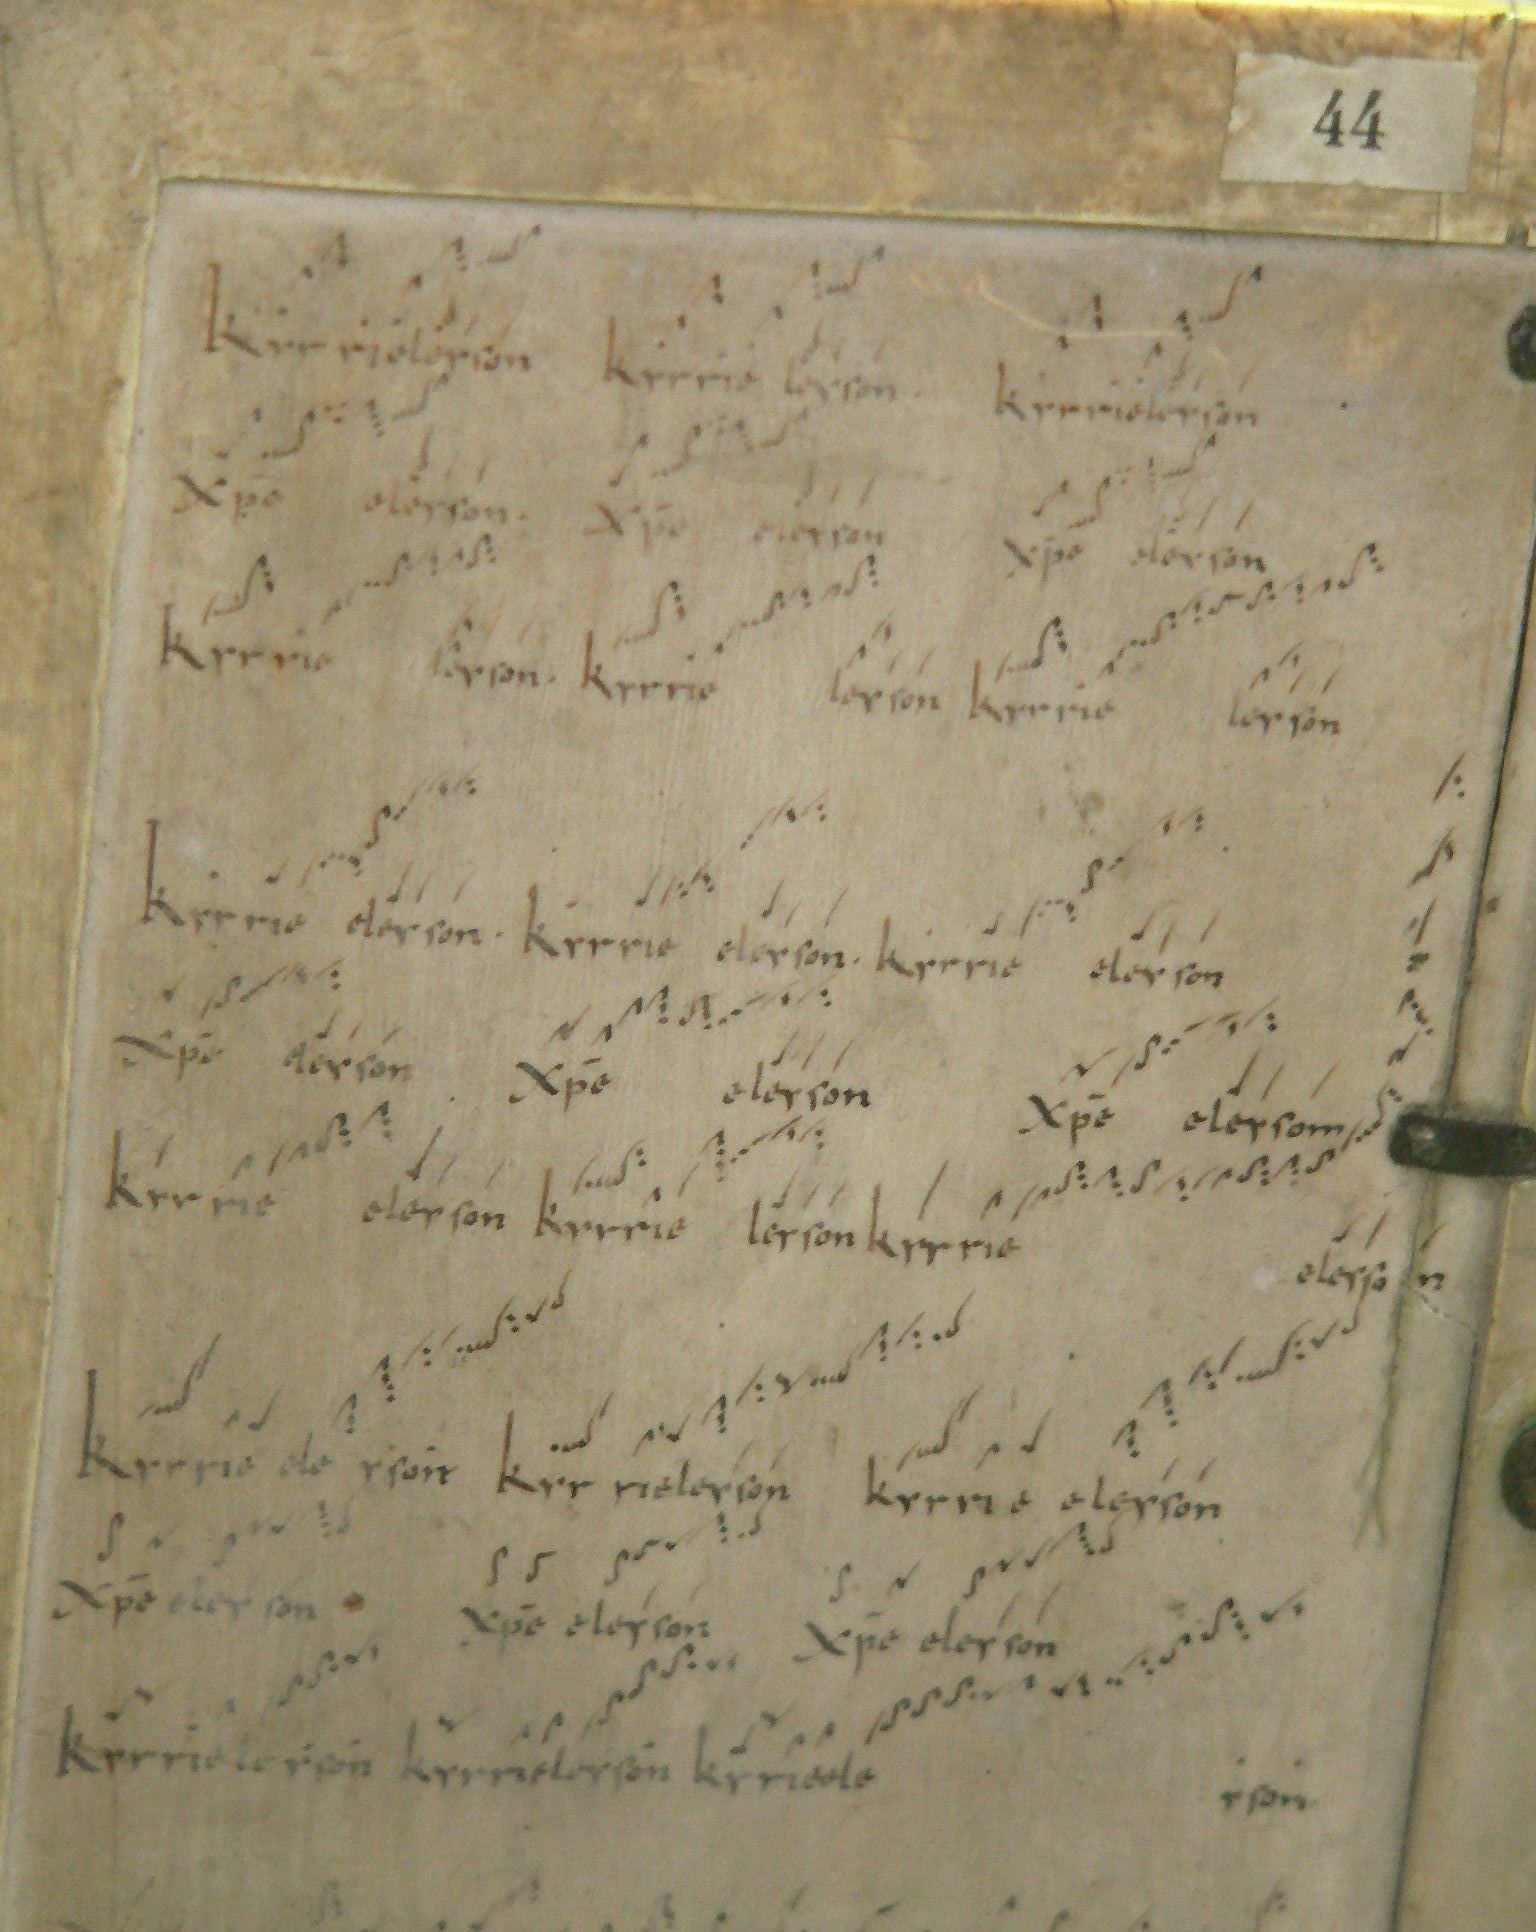 44
Kyrrieleyson Kyrrie leyson. Kyrrieleyson
Xpē eleyson. Xpē eleyson Xpē eleyson
Kyrrie leyson. Kyrrie leyson Kyrrie leyson
Kyrrie eleyson. Kyrrie eleyson. Kyrrie eleyson
Xpē eleyson Xpē eleyson Xpē eleyson
Kyrrie eleyson Kyrrie leyson Kyrrie eleyson
Kyrrie ele yson Kyr rieleyson Kyrrie eleyson
Xpē eleyson Xpē eleyson Xpē eleyson
Kyrrieleyson Kyrrieleyson Kyrrieele yson